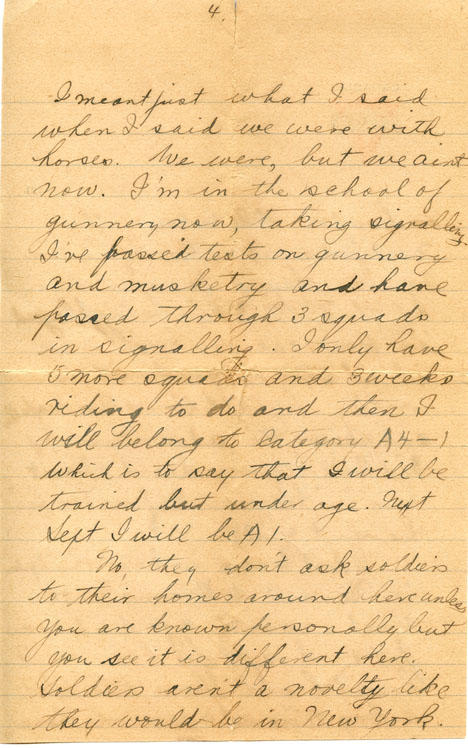 4.
I meant just what I said
when I said we were with
horses. We were, but we aint
now. I'm in the school of
gunnery now, taking signalling.
I've passed tests on gunnery
and musketry and have
passed through 3 squads
in signalling. I only have
5 more squads and 3 weeks
riding to do and then I
will belong to Category A4-1
which is to say that I will be
trained but under age. Next
Sept I will be A1.
No, they don't ask soldiers
to their homes around here unless
you are known personally but
you see it is different here.
Soldiers aren't a novelty like
they would be in New York.